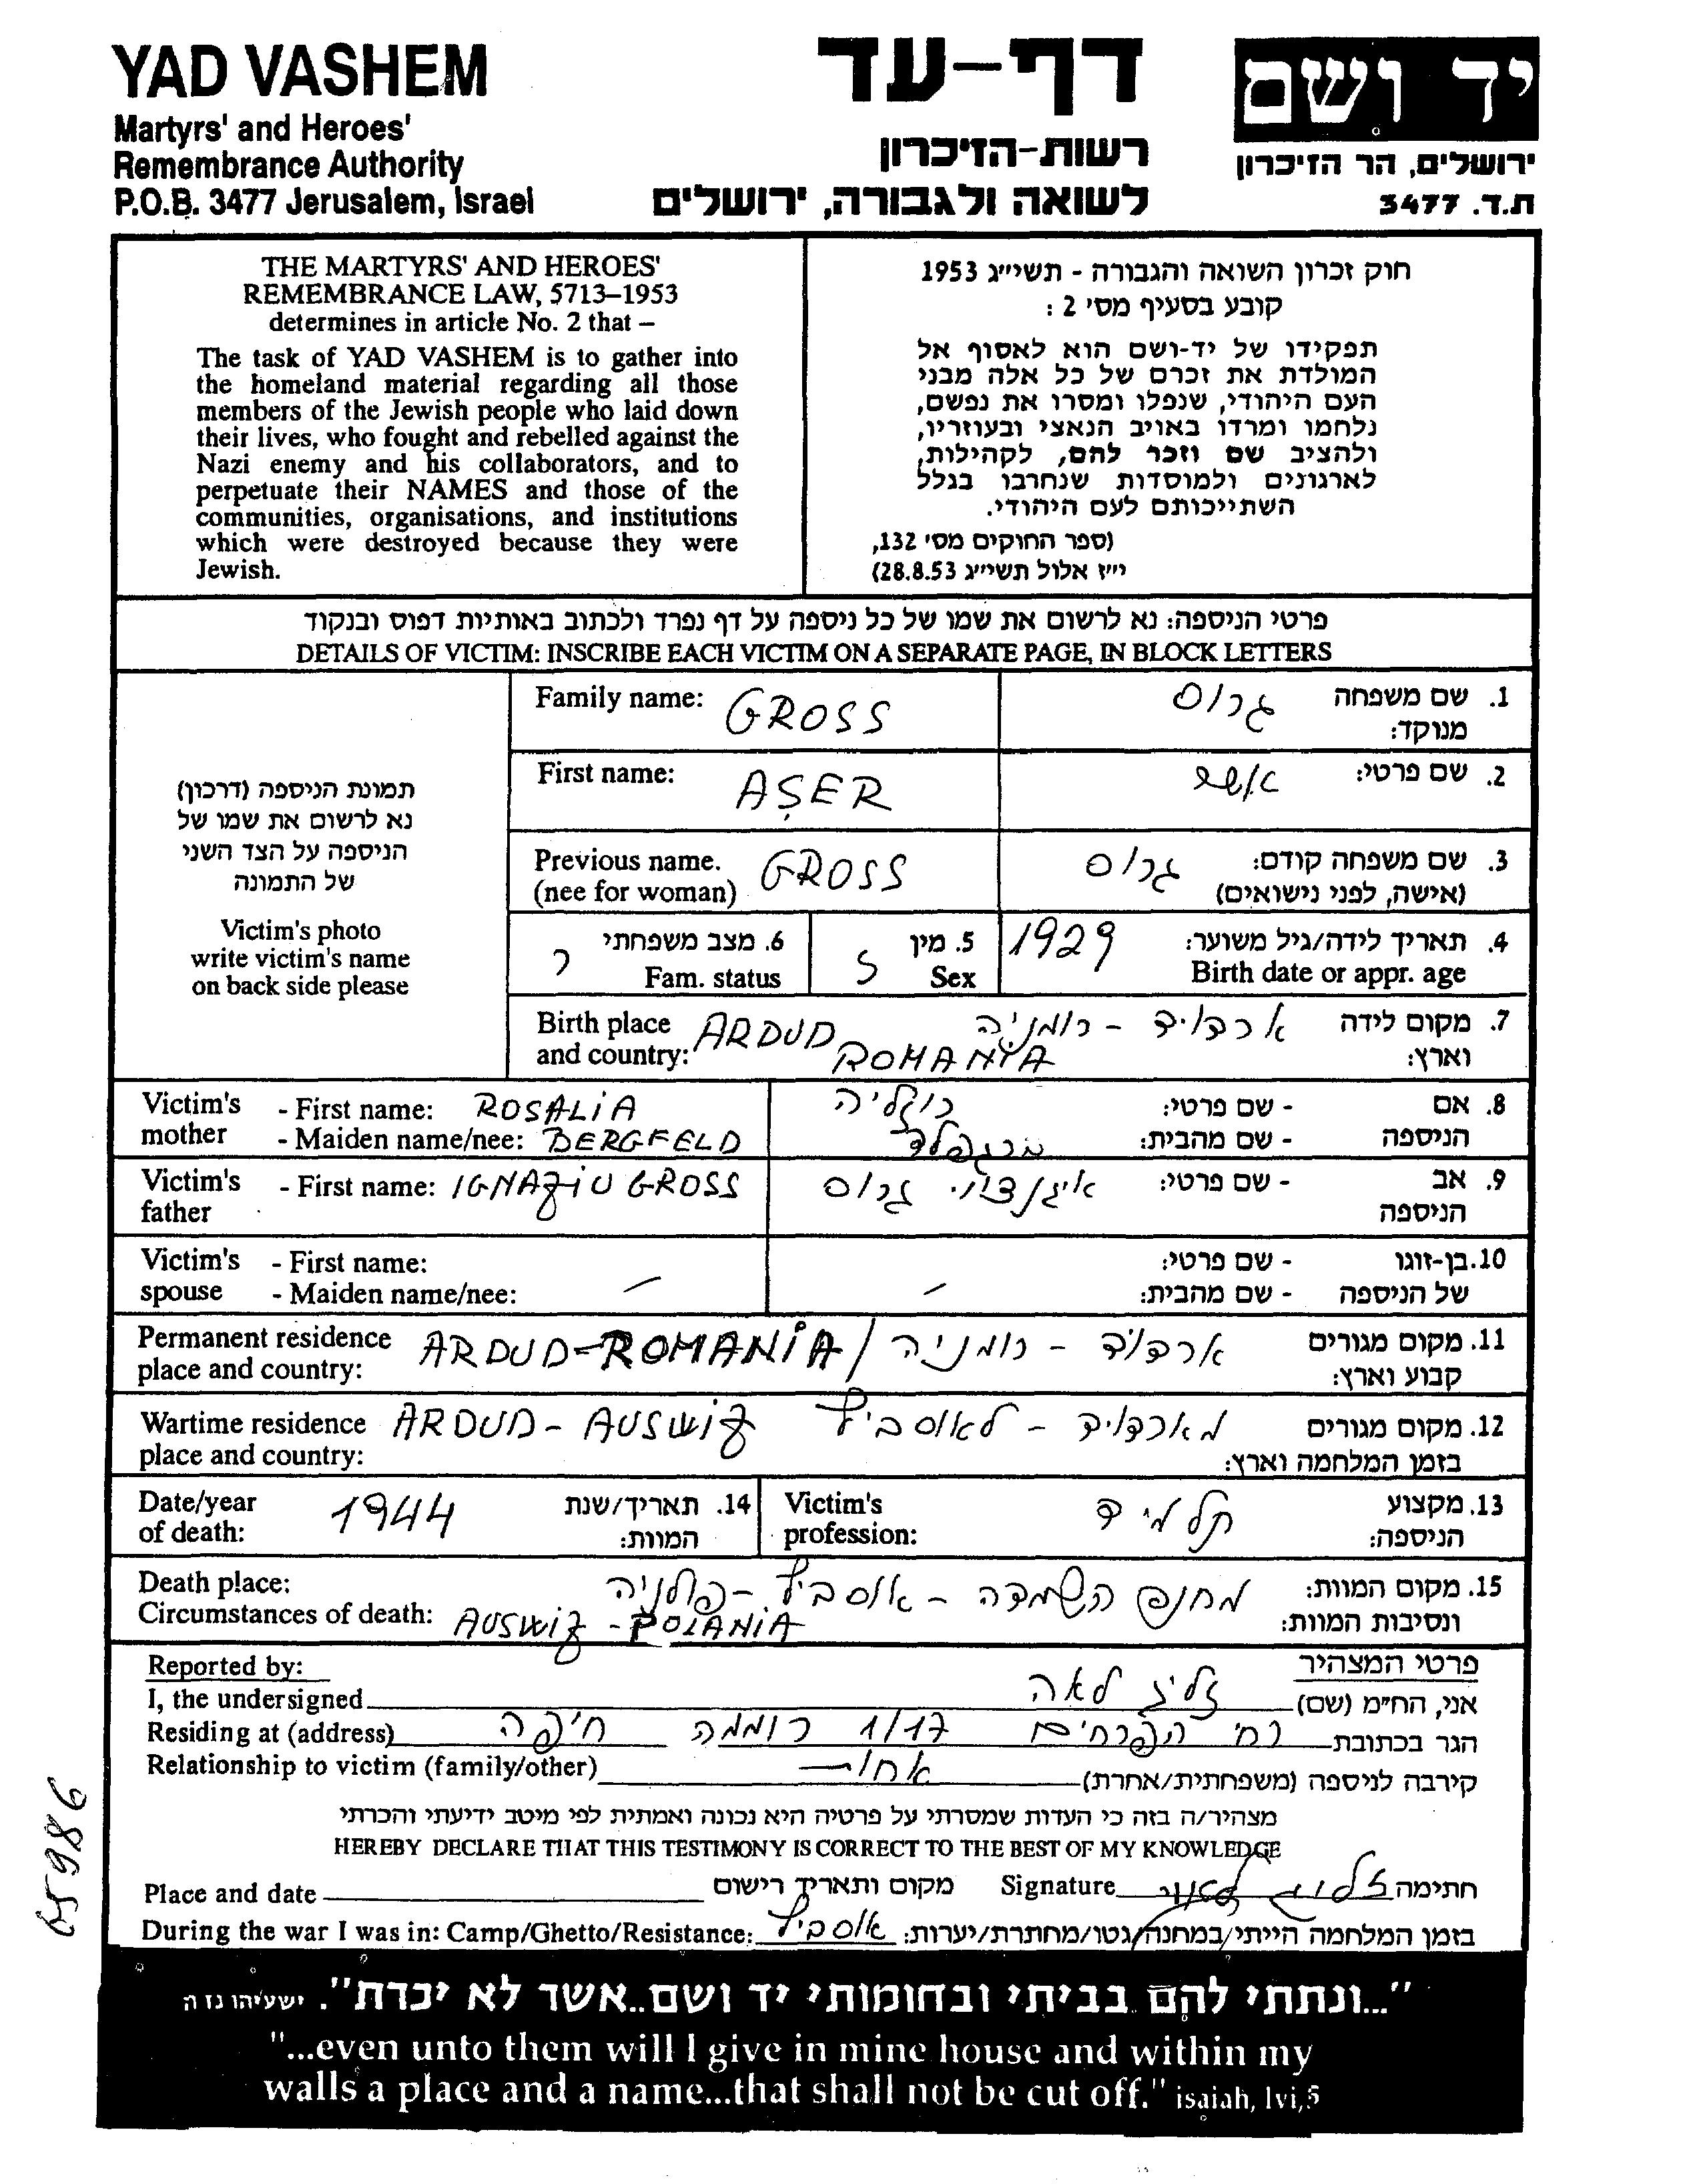 YAD VASHEM
Martyrs' and Heroes'
Remembrance Authority
P.O.B. 3477 Jerusalem, Israel
דף-עד
רשות-הזיכרון
לשואה ולגבורה, ירושלים
יד ושם
ירושלים, הר הזיכרון
ת.ד. 3477
THE MARTYRS' AND HEROES'
REMEMBRANCE LAW, 5713–1953
determines in article No. 2 that –
The task of YAD VASHEM is to gather into
the homeland material regarding all those
members of the Jewish people who laid down
their lives, who fought and rebelled against the
Nazi enemy and his collaborators, and to
perpetuate their NAMES and those of the
communities, organisations, and institutions
which were destroyed because they were
Jewish.
חוק זכרון השואה והגבורה - תשי״ג 1953
קובע בסעיף מס׳ 2 :
תפקידו של יד-ושם הוא לאסוף אל
המולדת את זכרם של כל אלה מבני
העם היהודי, שנפלו ומסרו את נפשם,
נלחמו ומרדו באויב הנאצי ובעוזריו,
ולהציב שם וזכר להם, לקהילות,
לארגונים ולמוסדות שנחרבו בגלל
השתייכותם לעם היהודי.
(ספר החוקים מס׳ 132,
י״ז אלול תשי״ג 28.8.53)
פרטי הניספה: נא לרשום את שמו של כל ניספה על דף נפרד ולכתוב באותיות דפוס ובנקוד
DETAILS OF VICTIM: INSCRIBE EACH VICTIM ON A SEPARATE PAGE, IN BLOCK LETTERS
תמונת הניספה (דרכון)
נא לרשום את שמו של
הניספה על הצד השני
של התמונה
Victim's photo
write victim's name
on back side please
Family name: GROSS גרוס 1. שם משפחה
מנוקד:
First name: AŞER אשר 2. שם פרטי:
Previous name. GROSS גרוס 3. שם משפחה קודם:
(nee for woman) (אישה, לפני נישואים)
6. מצב משפחתי ר 5. מין 1929 4. תאריך לידה/גיל משוער:
Fam. status Sex Birth date or appr. age
Birth place ARDUD ארדוד - רומניה 7. מקום לידה
and country: ROMANYA וארץ:
Victim's - First name: ROSALiA רוזליה - שם פרטי: 8. אם
mother - Maiden name/nee: BERGFELD ברגפלד - שם מהבית: הניספה
Victim's - First name: IGNAZiU GROSS איגנציו גרוס - שם פרטי: 9. אב
father הניספה
Victim's - First name: - שם פרטי: 10. בן-זוגו
spouse - Maiden name/nee: – – - שם מהבית: של הניספה
Permanent residence ARDUD-ROMANiA / ארדוד - רומניה 11. מקום מגורים
place and country: קבוע וארץ:
Wartime residence ARDUD - AUSWiZ מארדוד - לאוסביץ 12. מקום מגורים
place and country: בזמן המלחמה וארץ:
Date/year 1944 14. תאריך/שנת
of death: המוות:
Victim's תלמיד 13. מקצוע
profession: הניספה:
Death place: מחנה השמדה - אוסביץ - פולניה 15. מקום המוות:
Circumstances of death: AUSWiZ - POLANiA ונסיבות המוות:
Reported by: פרטי המצהיר
I, the undersigned זליג לאה אני, הח״מ (שם)
Residing at (address) רח' הפרחים 1/17 רוממה חיפה הגר בכתובת
Relationship to victim (family/other) אחות קירבה לניספה (משפחתית/אחרת)
מצהיר/ה בזה כי העדות שמסרתי על פרטיה היא נכונה ואמתית לפי מיטב ידיעתי והכרתי
HEREBY DECLARE THAT THIS TESTIMONY IS CORRECT TO THE BEST OF MY KNOWLEDGE
Place and date מקום ותאריך רישום Signature זליג לאה חתימה
During the war I was in: Camp/Ghetto/Resistance: אוסביץ בזמן המלחמה הייתי/במחנה/גטו/מחתרת/יערות:
"...ונתתי להם בביתי ובחומותי יד ושם..אשר לא יכרת". ישעיהו נו ה
"...even unto them will I give in mine house and within my
walls a place and a name...that shall not be cut off." isaiah, lvi,5
65986